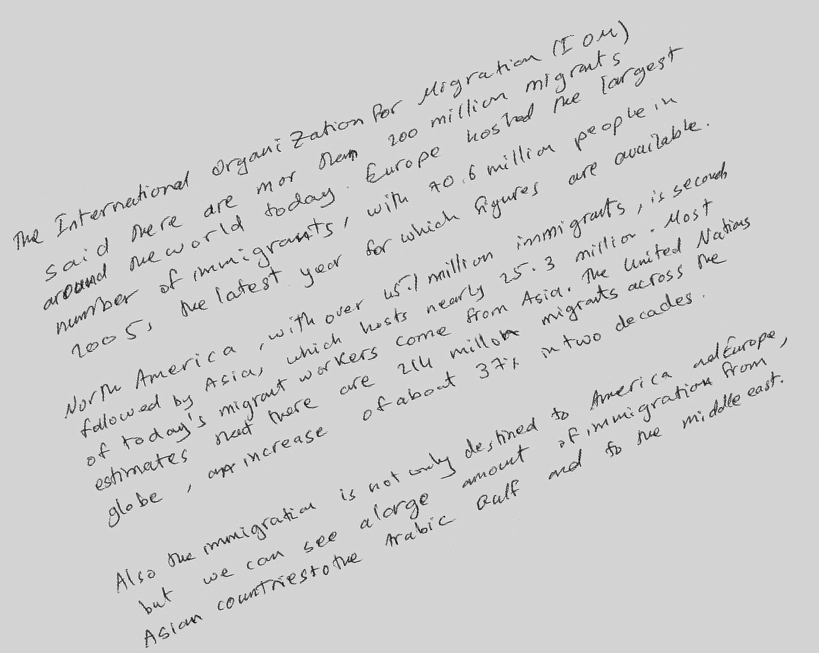 The International Organization For Migration (IOM)
said there are mor than 200 million migrants
around the world today. Europe hosted the largest
number of immigrants, with 70.6 million people in
2005, the latest year for which figures are available.
North America, with over 45.1 million immigrants, is second,
followed by Asia, which hosts nearly 25.3 million. Most
of today's migrant workers come from Asia. The United Nations
estimates that there are 214 million migrants across the
globe, an increase of about 37% in two decades.
Also the immigration is not only destined to America and Europe,
but we can see a large amount of immigration from
Asian countries to the Arabic Gulf and to the middle east.